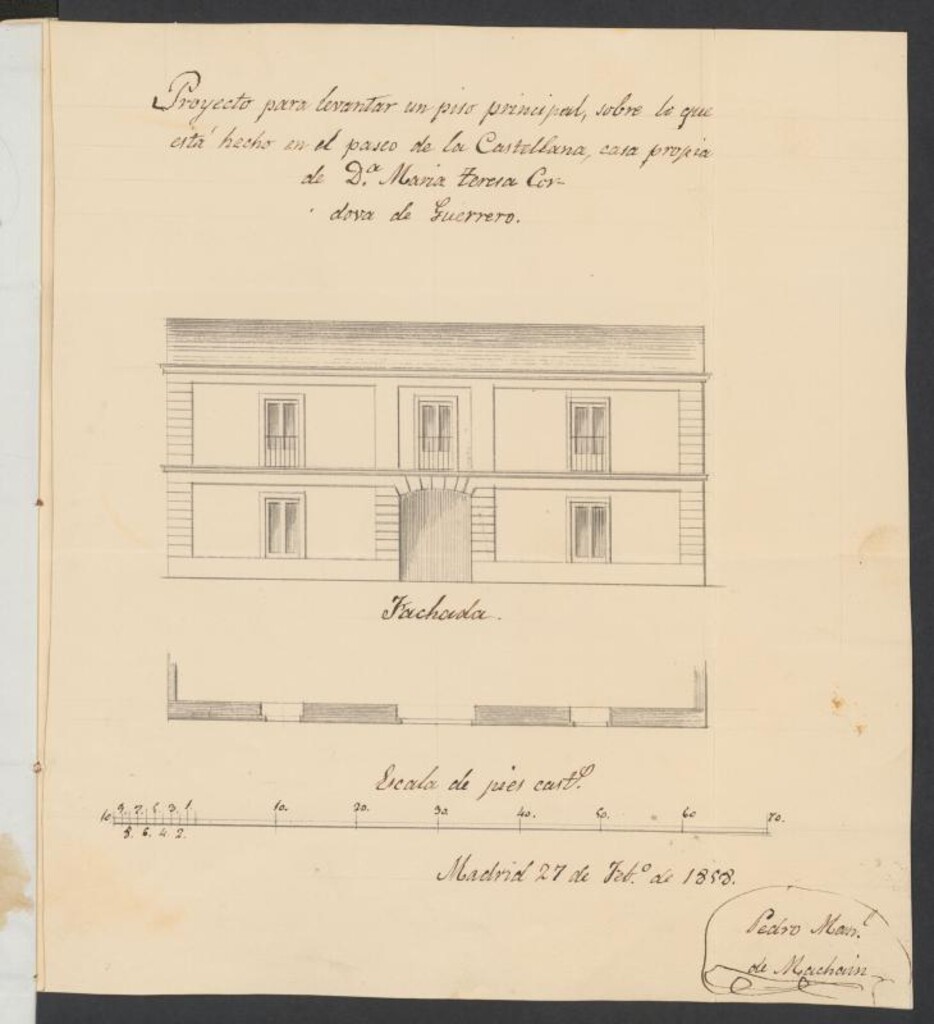 Proyecto para levantar un piso principal, sobre lo que
está hecho en el paseo de la Castellana, casa propia
de D.ª Maria Teresa Cor-
dova de Guerrero.
Fachada.
Escala de pies cast.ˢ
10 9. 7. 5. 3. 1. 10. 20. 30. 40. 50. 60 70.
8. 6. 4. 2.
Madrid 27 de Feb.º de 1858.
Pedro Man.ˡ
de Machain